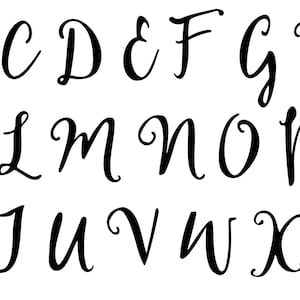 C D E F G
L M N O
T U V W X